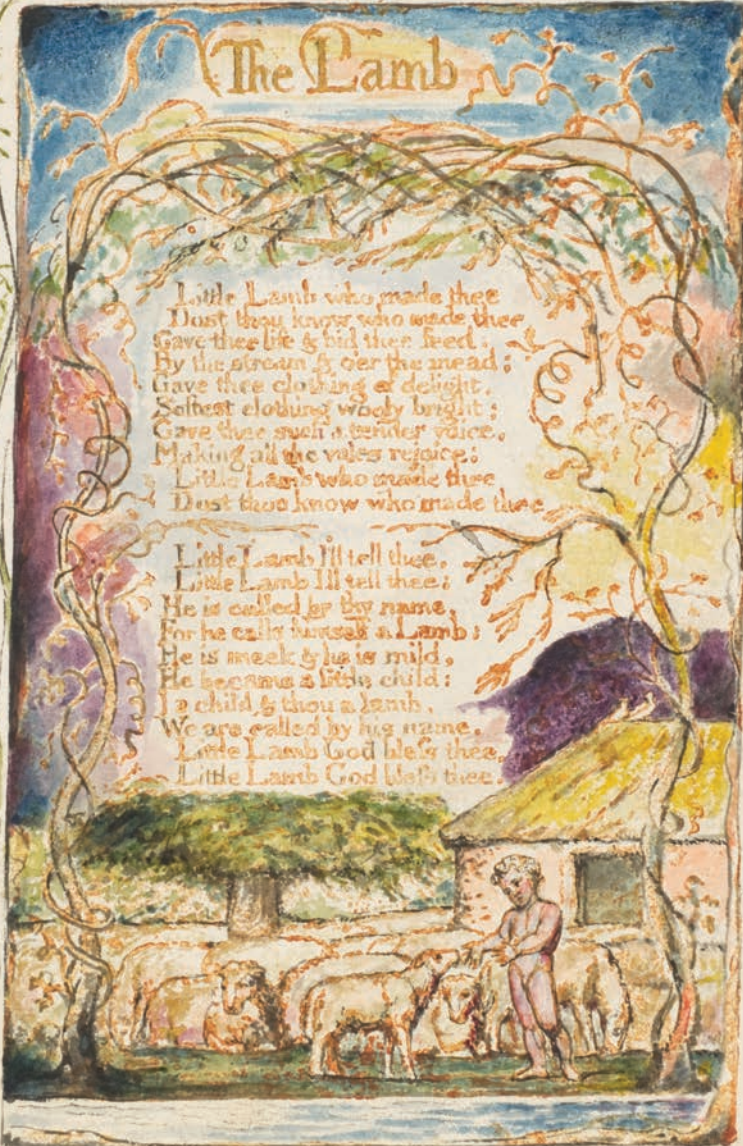 The Lamb
Little Lamb who made thee
Dost thou know who made thee
Gave thee life & bid thee feed.
By the stream & o'er the mead;
Gave thee clothing of delight,
Softest clothing wooly bright;
Gave thee such a tender voice,
Making all the vales rejoice:
Little Lamb who made thee
Dost thou know who made thee
Little Lamb I'll tell thee,
Little Lamb I'll tell thee:
He is called by thy name,
For he calls himself a Lamb:
He is meek & he is mild,
He became a little child:
I a child & thou a lamb,
We are called by his name.
Little Lamb God bless thee,
Little Lamb God bless thee.